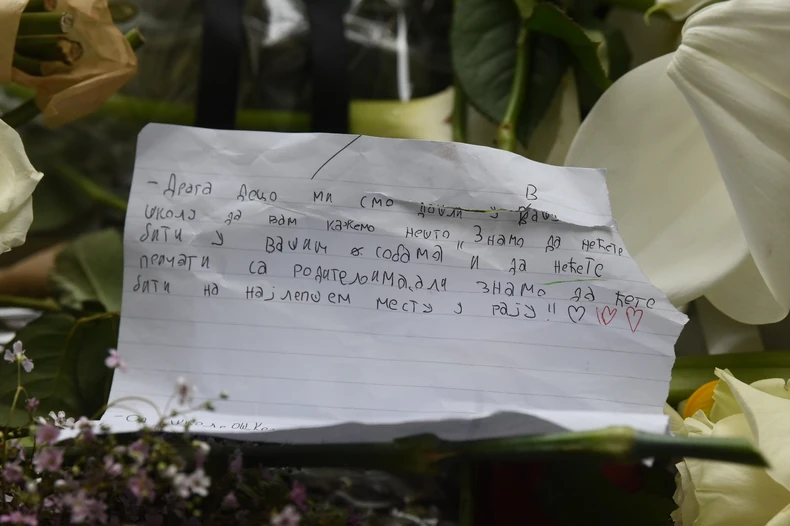 - Драга децо ми смо дошли у Вашу
школу да вам кажемо нешто Знамо да нећете
бити у вашим собама и да нећете
причати са родитељима,али знамо да ћете
бити на најлепшем месту у рају!! ♡ ♡ ♡